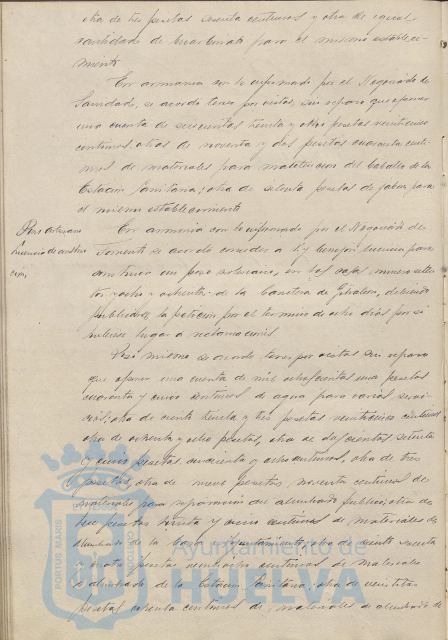 otra de tres pesetas sesenta centimos y otra de igual
cantidad de bicarbonato para el mismo estableci-
miento
En armonia con lo informado por el Negociado de
Sanidad, se acordó tener por vistas, sin reparo que oponer
una cuenta de seiscientas treinta y ocho pesetas veinticinco
centimos, otras de noventa y dos pesetas cuarenta centi-
mos de materiales para manutencion del caballo de la
Estacion Sanitaria; otra de setenta pesetas de jabon para
el mismo establecimiento
Pozo artesiano
Licencia de construc-
cion,
En armonia con lo informado por el Negociado de
Fomento se acordó conceder a licencia para
construir un pozo artesiano, en las casas numero seten-
ta y ocho y ochenta de la Carretera de Gibraleon, debiendo
publicarse la peticion por el termino de ocho dias por si
hubiere lugar a reclamaciones.
Asi mismo se acordó tener por vistas sin reparo
que oponer una cuenta de mil ochocientas una pesetas
cuarenta y cinco centimos de agua para varios servi-
cios; otra de ciento treinta y tres pesetas veinticinco centimos
otra de ochenta y ocho pesetas, otra de doscientas setenta
y cinco pesetas cincuenta y ocho centimos, otra de tres
pesetas, otra de nueve pesetas noventa centimos de
materiales para reparacion del alumbrado publico; otra de
tres pesetas treinta y cinco centimos de materiales de
alumbrado de la Casa Ayuntamiento; otra de ciento sesenta
pesetas veintiocho centimos de materiales
de alumbrado de la Estacion Sanitaria; otra de veintitres
pesetas centimos de materiales de alumbrado de
PORTUS MARIS
CUSTODIA
Ayuntamiento de
HUELVA